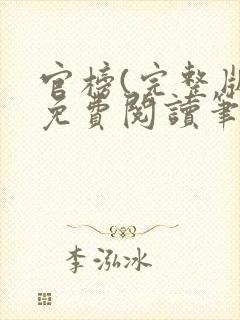 官榜(完整版
免費閱讀筆
李泓冰